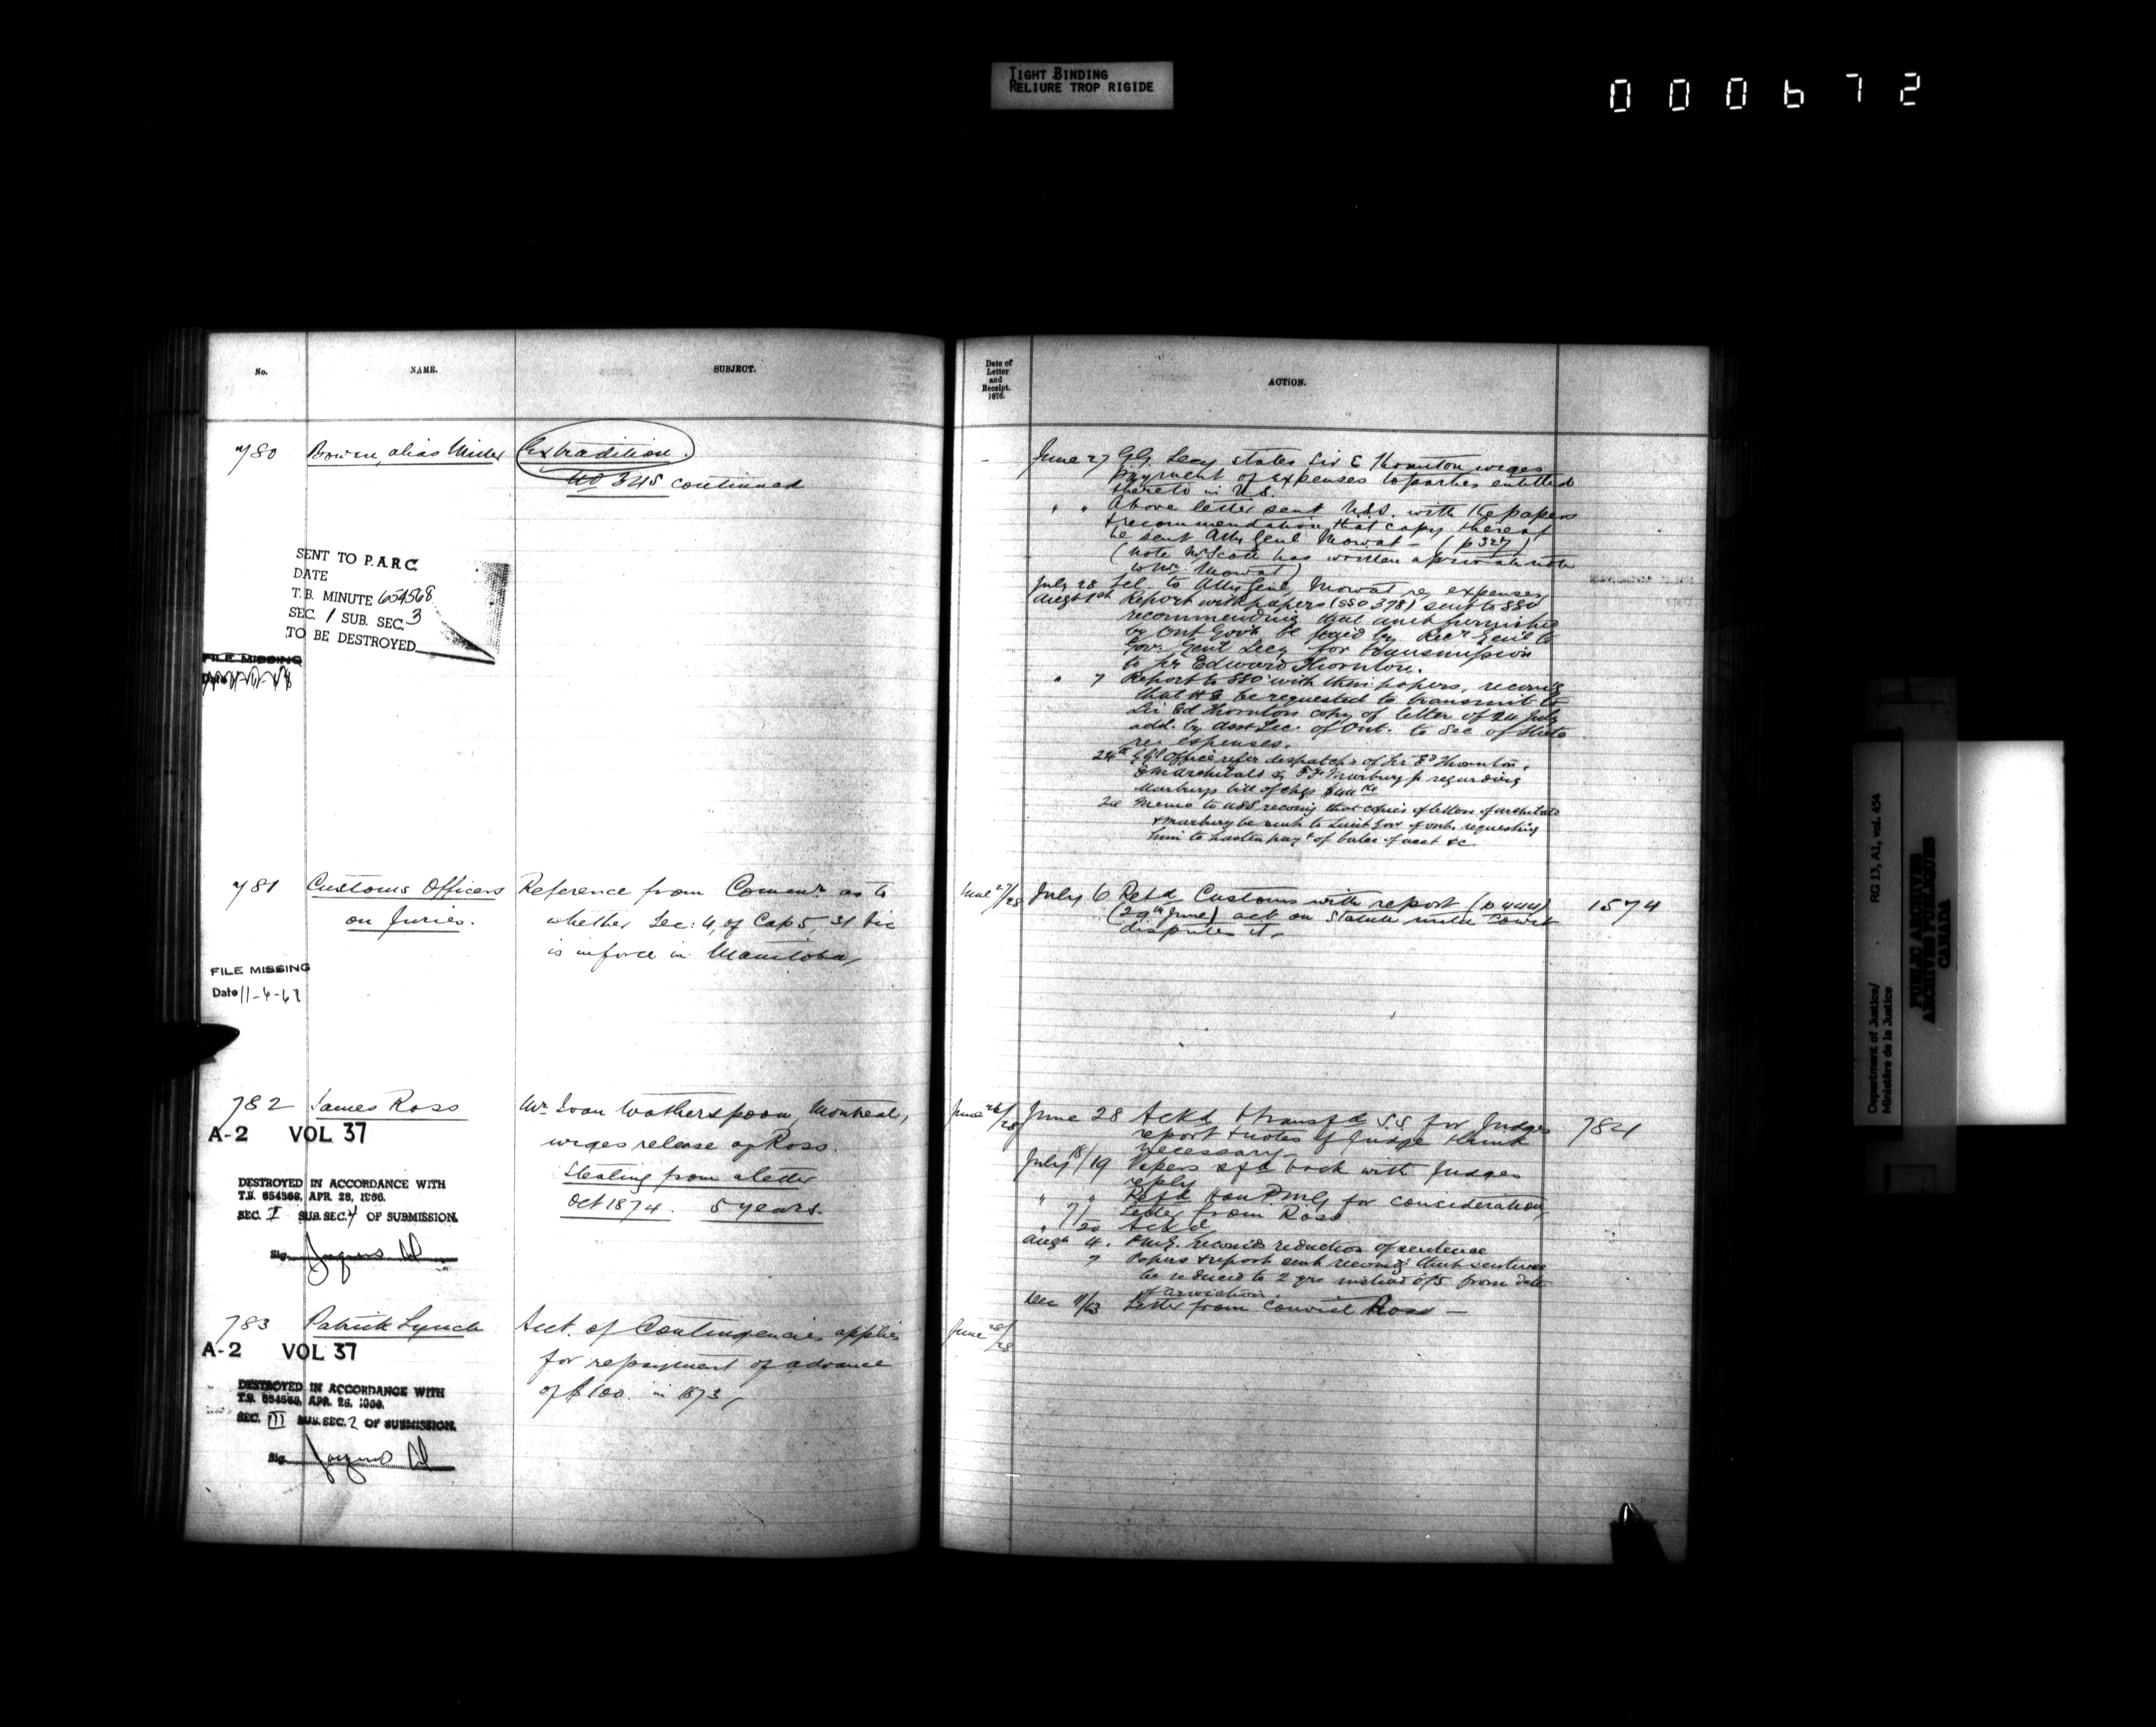 TIGHT BINDING
RELIURE TROP RIGIDE
000672
No.
NAME.
SUBJECT.
780
Bowen, alias Miller
Extradition.
No 345 continued
SENT TO P.A.R.C.
DATE
T.B. MINUTE 654568
SEC. 1 SUB. SEC. 3
TO BE DESTROYED
FILE MISSING
Date
781
Customs Officers
on Juries.
Reference from Comm. as to
whether Sec: 4, of Cap 5, 31 Vic
is in force in Manitoba,
FILE MISSING
Date 11-6-68
782
James Ross
A-2 VOL 37
Mr Ivan Wotherspoon, Montreal,
urges release of Ross.
Stealing from a letter
Oct 1874. 5 years.
DESTROYED IN ACCORDANCE WITH
T.B. 654568, APR. 28, 1966.
SEC. I SUB. SEC. 4 OF SUBMISSION.
Sig.
783
Patrick Lynch
A-2 VOL 37
Acct. of Contingencies applies
for repayment of advance
of $100. in 1873,
DESTROYED IN ACCORDANCE WITH
T.B. 654568, APR. 28, 1966.
SEC. III SUB. SEC. 2 OF SUBMISSION.
Sig.
Date of
Letter
and
Receipt.
1876.
ACTION.
June 27 G.G. Secy states Sir E Thornton urges
payment of expenses to parties entitled
thereto in U.S.
" " Above letter sent U.S.S. with the papers
& recommendation that copy thereof
be sent Atty Genl Mowat - (p 327)
(note Mr Scott has written a private note
to Mr. Mowat)
July 28 Tel. to Atty Genl Mowat re expenses
Augt 1st Report with papers (SSO 378) sent to SSO
recommending that amt furnished
by Ont Govt be paid by Recr Genl to
Gov. Genl Secy for transmission
to Sir Edward Thornton.
" 7 Report to SSO with then papers, recomg
that H E be requested to transmit to
Sir Ed Thornton copy of letter of 24 July
add. by asst Sec. of Ont. to Sec of State
re expenses.
24th GG Office refer despatch of Sir Ed Thornton,
Archibald & F.F. Marbury Jr regarding
Marburys bill of chgs
24 Memo to USS recomg that copies of letters of Archibald
& Marbury be sent to Lieut Govr of Ont. requesting
him to hasten payt of balce of acct &c.
June 27/28 July 6 Retd Customs with report (p 444)
(29th June) act on Statute until Court
disputes it.
1574
June 26/28 June 28 Ackd & transfd S.S. for Judges
report & notes if Judge think
necessary.
July 18/19 Papers refd back with Judges
reply
" " Refd Hon P.M.G for consideration,
Letter from Ross.
" 20 Ackd
Augt 4. P.M.G. recomds reduction of sentence
7 Papers & report sent recomg that sentence
be reduced to 2 yrs instead of 5 from date
of conviction.
Dec 11/13 Letter from Convict Ross —
784
June 28/28
RG 13, A1, vol. 454
Department of Justice/
Ministère de la Justice
PUBLIC ARCHIVES
ARCHIVES PUBLIQUES
CANADA